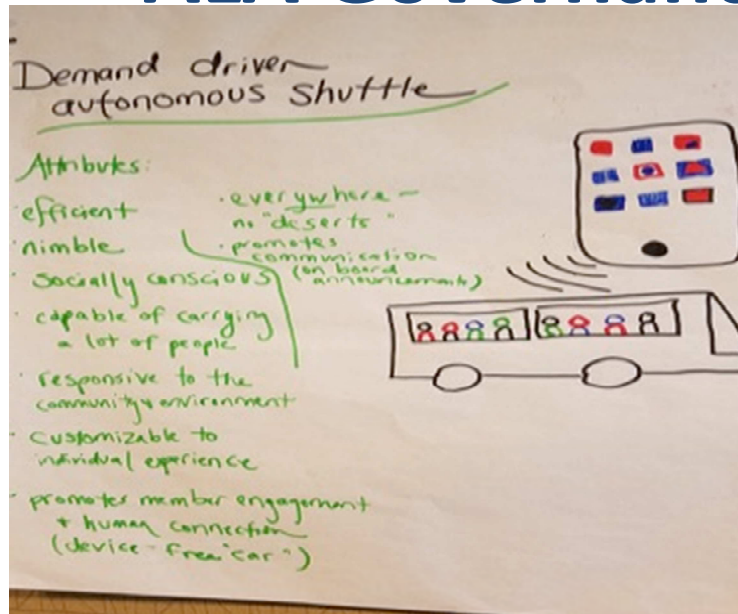 Demand driven
autonomous Shuttle
Attributes:
efficient
nimble
· socially conscious
· capable of carrying
a lot of people
· responsive to the
community + environment
· customizable to
individual experience
· promotes member engagement
+ human connection
(device-free "car")
· everywhere –
no "deserts"
· promotes
communication
(on board
announcements)